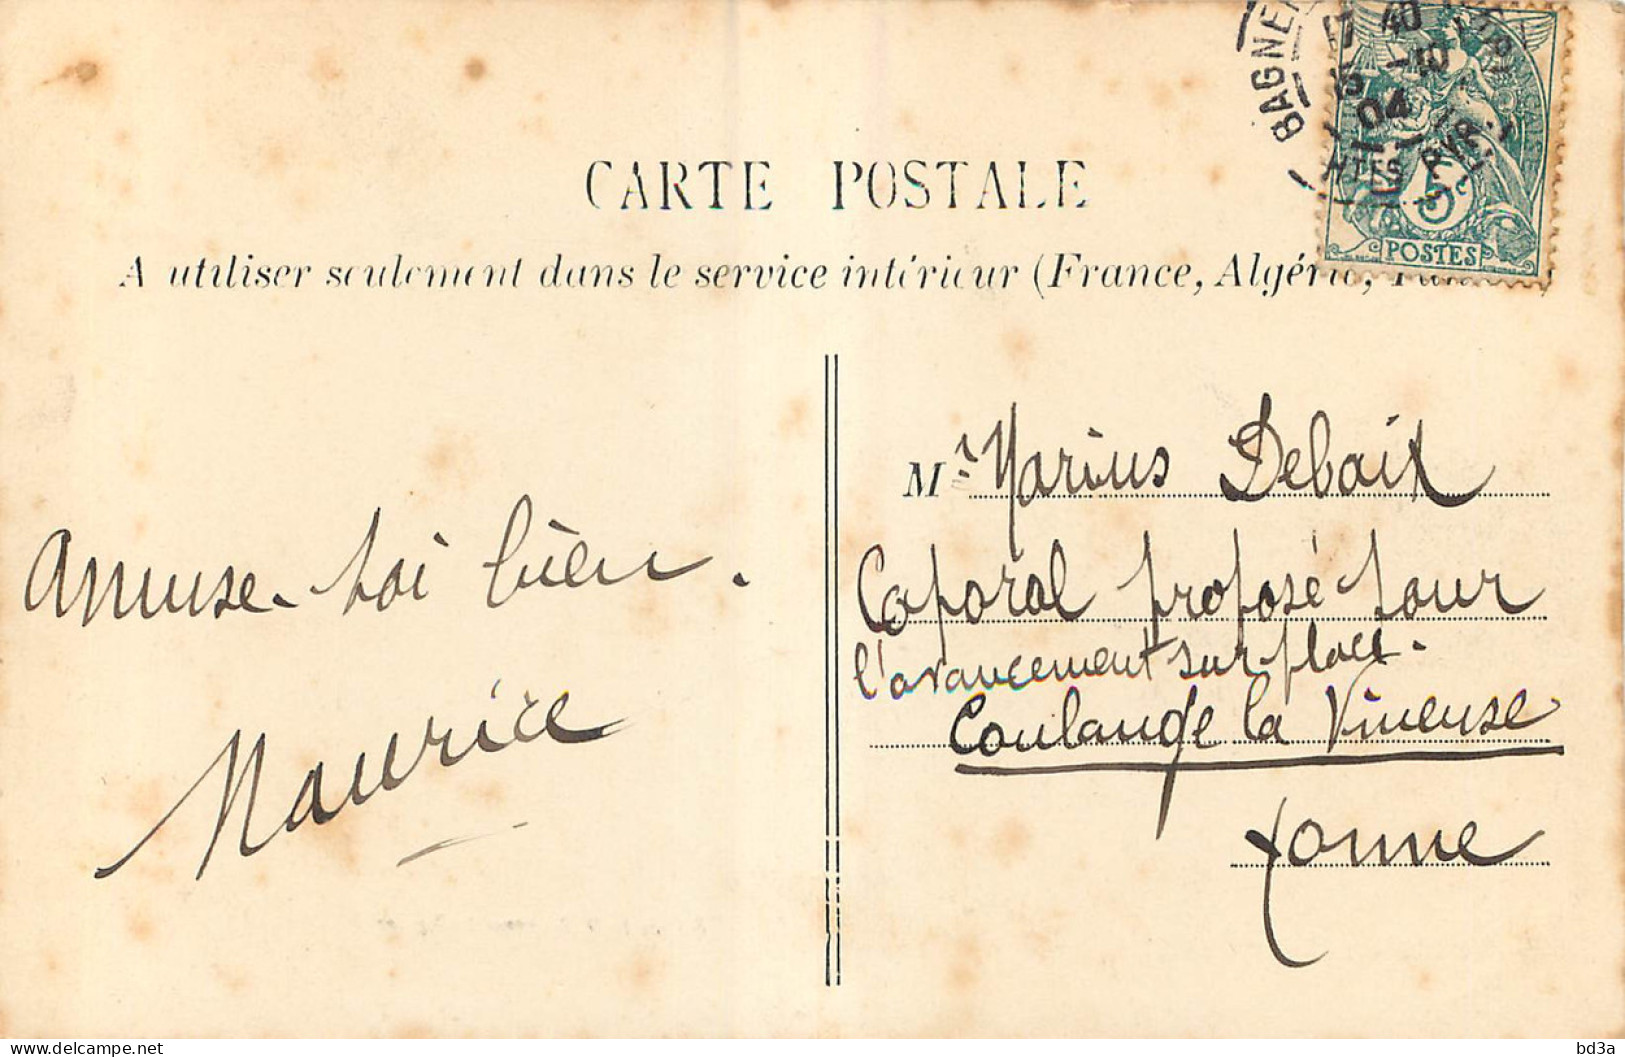 BAGNE
17 40
15 -10
04
HTES PYR.
5c
POSTES
CARTE POSTALE
A utiliser seulement dans le service intérieur (France, Algérie,
Mr Marius Debaix
Caporal proposé pour
l'avancement sur place.
Coulange la Vineuse
Yonne
Amuse-toi bien.
Maurice
delcampe.net
bd3a